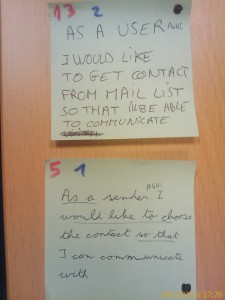 13 2
AS A USER
I WOULD LIKE
TO GET CONTACT
FROM MAIL LIST
SO THAT I'LL BE ABLE
TO COMMUNICATE
5 1
As a sender I
would like to choose
the contact so that
I can communicate
with